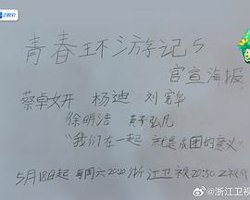 青春环游记5
官宣海报
蔡卓妍 杨迪 刘宇
徐明浩 黄子弘凡
"我们在一起 就是众团的意义"
5月18日起 每周六2020浙江卫视20:50
@浙江卫视